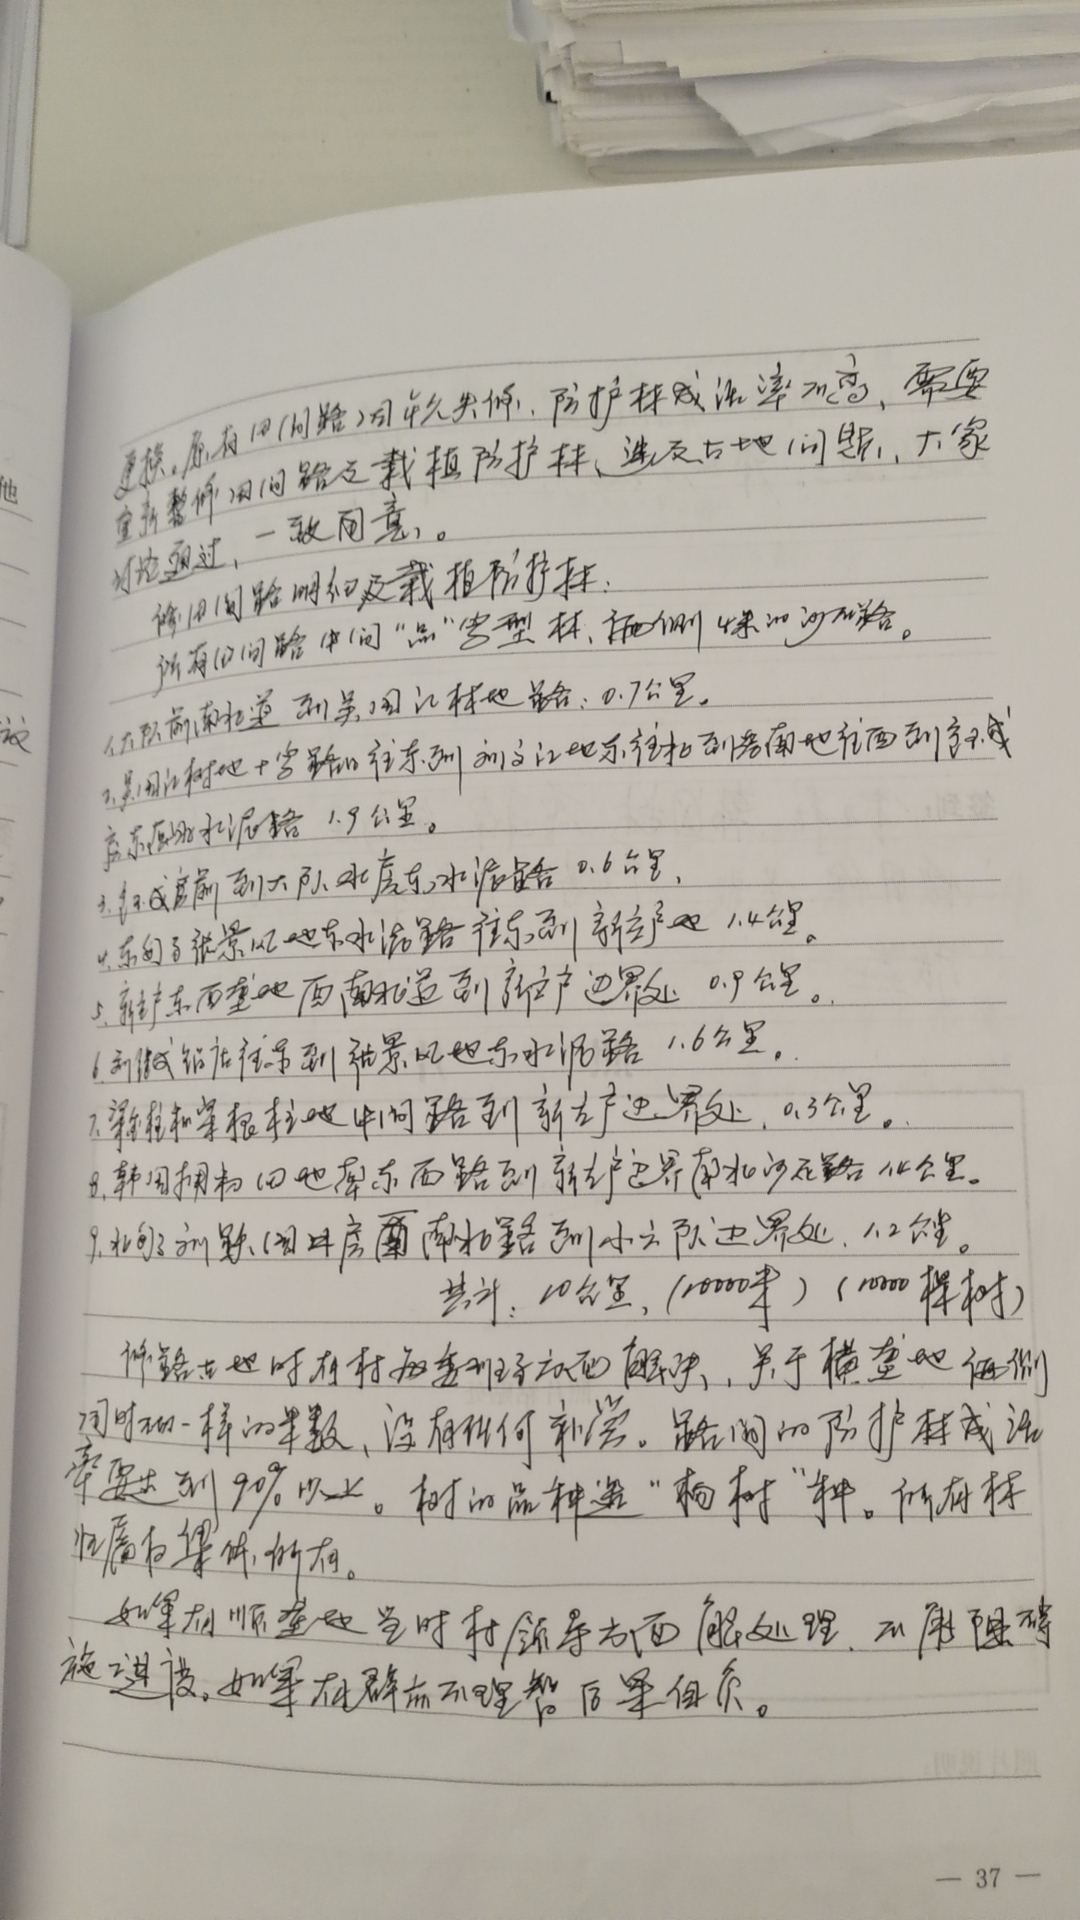 更换。原有田间路因年久失修、防护林成活率不高、需要
重新整修田间路及栽植防护林、涉及占地问题、大家
讨论通过，一致同意。
修田间路明细及栽植防护林：
所有田间路中间“品”字型林、两侧4米的沙石路。
1.大队前南北道到吴国江林地路：0.7公里。
2.吴国江树地十字路口往东到刘文江地东往北到 南地往西到 成
房东 水泥路 1.9公里。
3. 成房前到大队水房东水泥路 0.6公里，
4.东 子张景 地东水泥路往东到新立户地 1.4公里。
5.新立户东西垄地西南北道到新立户边界处 0.9公里。
6.刘 成 往东到张景 地东水泥路 1.6公里。
7.梁 柱和宋根柱地中间路到新立户边界处，0.3公里。
8.韩国 田地南东西路到新立户边界南北沙石路 1.4公里。
9.北 子刘 国井房西南北路到小六队边界处，1.2公里。
共计：10公里，（10000米）（10000棵树）
修路占地时有村两委班子方面解决，关于横垄地两侧
同时 一样的米数、没有任何补偿。路间的防护林成活
率要达到90%以上。树的品种选“杨树”种。所有林
归属为集体所有。
如果有顺垄地当时村领导方面解处理、不用阻碍
施工进度。如果有群众不理智后果自负。
— 37 —
他